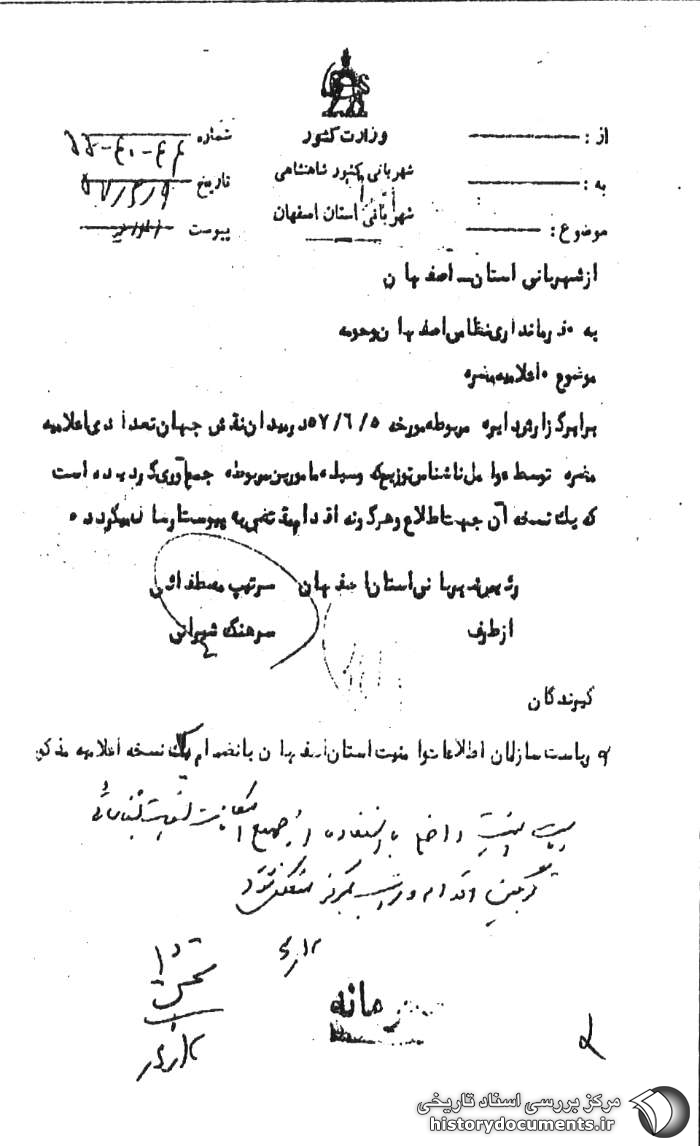 وزارت کشور
شهربانی کشور شاهنشاهی
شهربانی استان اصفهان
از :
به :
موضوع :
شماره
تاریخ
پیوست
از شهربانی استان اصفهان
به فرمانداری نظامی اصفهان و حومه
موضوع اعلامیه مضره
برابر گزارش دایره مربوطه مورخه ۵۷/۶/۵ در میدان نقش جهان تعدادی اعلامیه
مضره توسط عوامل ناشناس توزیع که وسیله مامورین مربوطه جمع‌آوری گردیده است
که یک نسخه آن جهت اطلاع و هرگونه اقدام مقتضی به پیوست ارسال میگردد
رئیس شهربانی استان اصفهان سرتیپ مصطفائی
از طرف سرهنگ شهرانی
گیرندگان
ریاست سازمان اطلاعات و امنیت استان اصفهان بانضمام یک نسخه اعلامیه مذکور
امنیت داخلی با استفاده از جمیع امکانات نسبت بشناسائی
اقدام و مرکز منعکس شود
مرکز بررسی اسناد تاریخی
historydocuments.ir